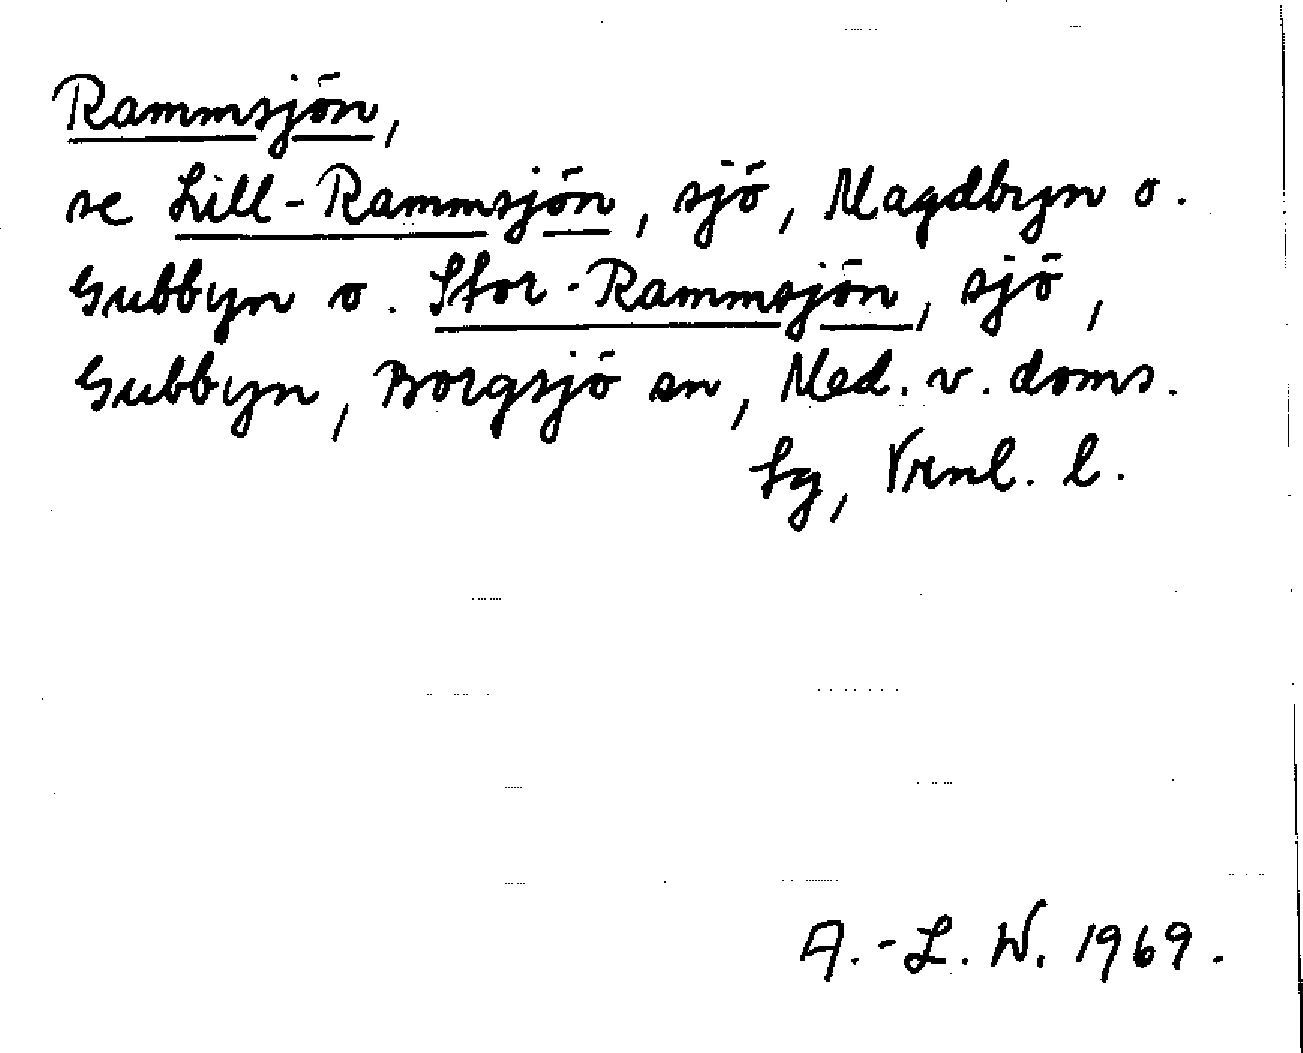 Rammsjön,
se Lill-Rammsjön, sjö, Magdbyn o.
Gubbyn o. Stor-Rammsjön, sjö,
Gubbyn, Borgsjö sn, Med. v. doms.
sg, Vrnl. l.
A.-L. W. 1969.